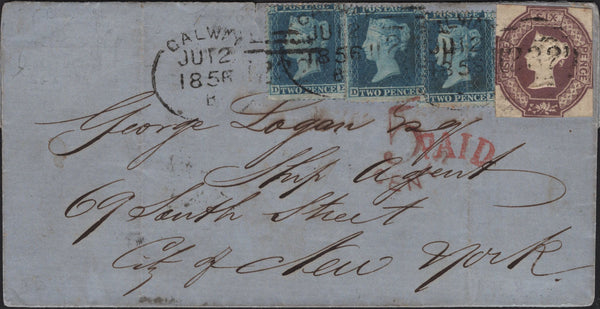 GALWAY
JU 12
1856
B
JU 12
1856
B
JU 12
1856
POSTAGE
POSTAGE
POSTAGE
D TWO PENCE E
D TWO PENCE
D TWO PENCE
SIX
PENCE
PAID
George Logan Esq
Ship Agent
69 South Street
City of New York